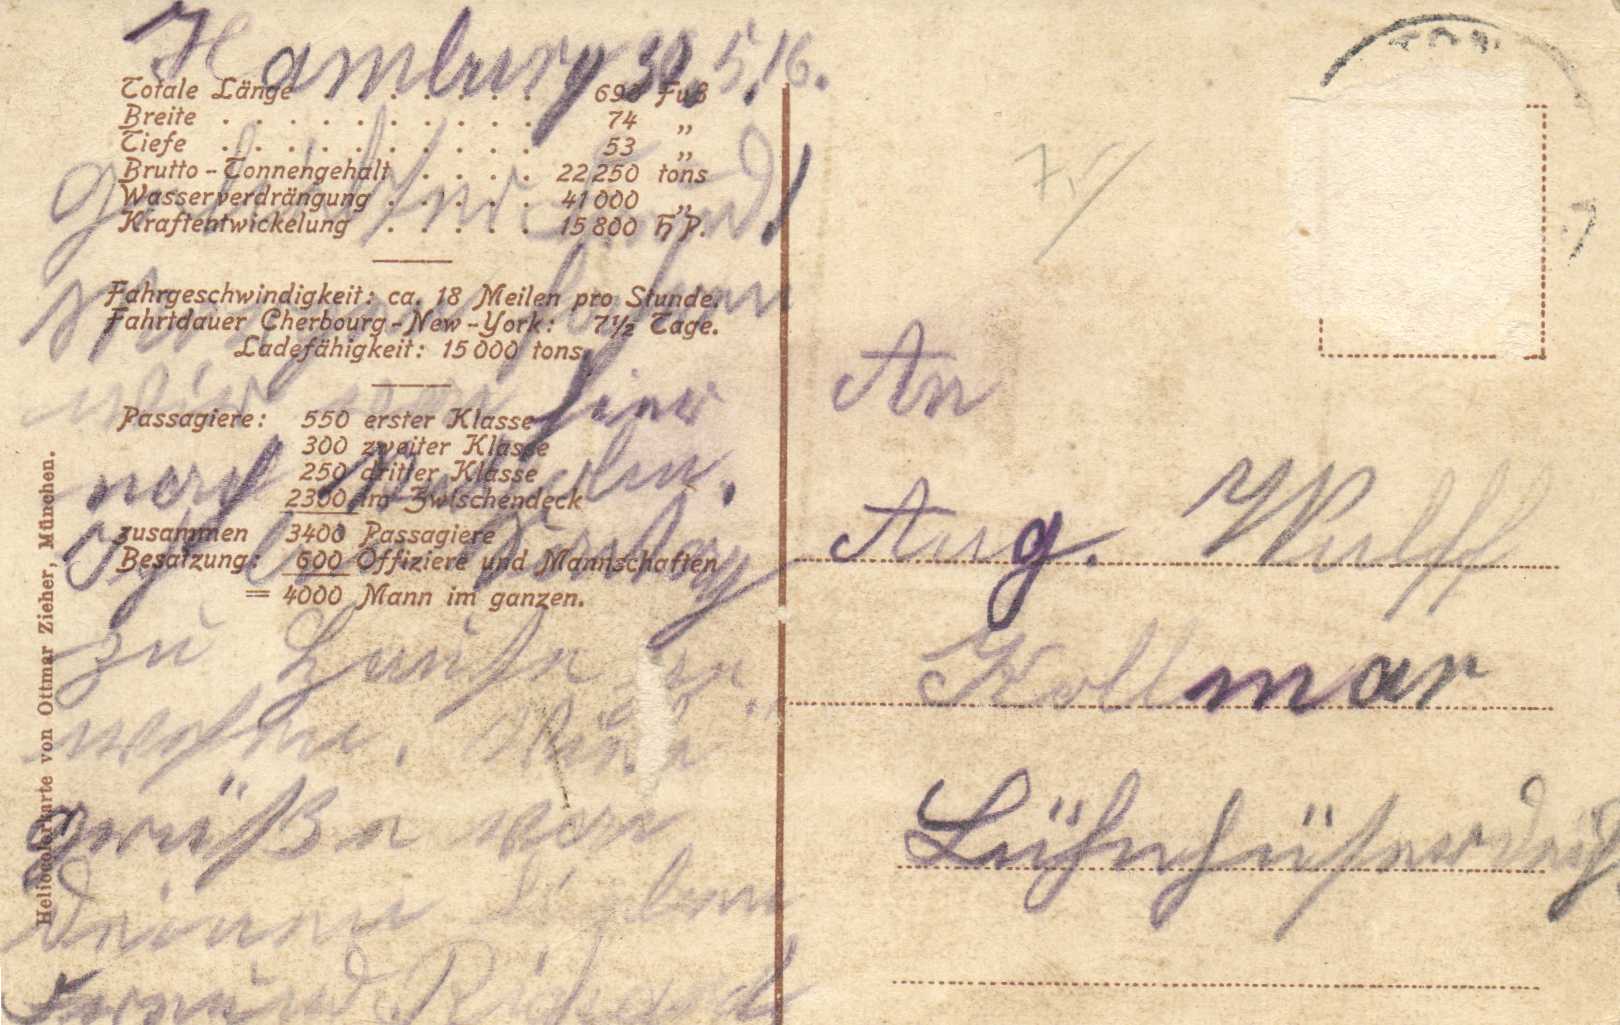 Hamburg 30.5.16.
Totale Länge . . . . . . . 690 Fuß
Breite . . . . . . . . . . 74 „
Tiefe . . . . . . . . . . 53 „
Brutto-Tonnengehalt . . . . 22250 tons
Wasserverdrängung . . . . . 41000 „
Kraftentwickelung . . . . . 15800 H P.
Fahrgeschwindigkeit: ca. 18 Meilen pro Stunde.
Fahrtdauer Cherbourg-New-York: 7½ Tage.
Ladefähigkeit: 15000 tons.
Passagiere: 550 erster Klasse
300 zweiter Klasse
250 dritter Klasse
2300 im Zwischendeck
zusammen 3400 Passagiere
Besatzung: 600 Offiziere und Mannschaften
= 4000 Mann im ganzen.
Geliebter Freund!
fahren
wir von hier
nach
zu Hause zu
Viele
Grüße von
deinem lieben
Freund Richard
Heliocolorkarte von Ottmar Zieher, München.
An
Aug. Wulff
Kollmar
Lühnhüserdeich